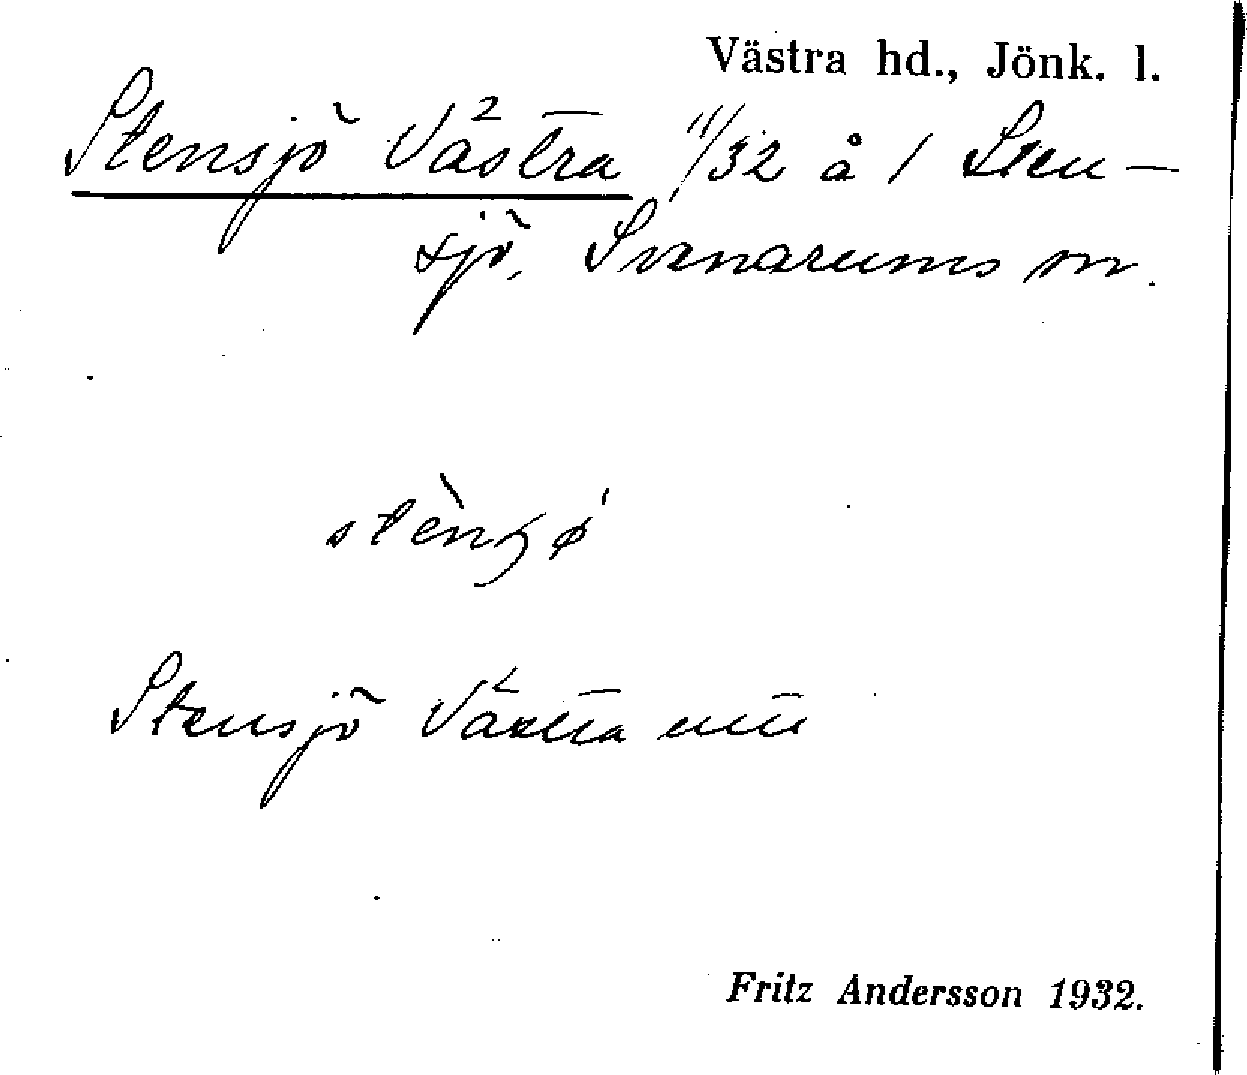 Västra hd., Jönk. l.
Stensjö Västra 11/32 å 1 Sten-
sjö, Svenarums sn.
stènʒǿ
Stensjö Västra
Fritz Andersson 1932.